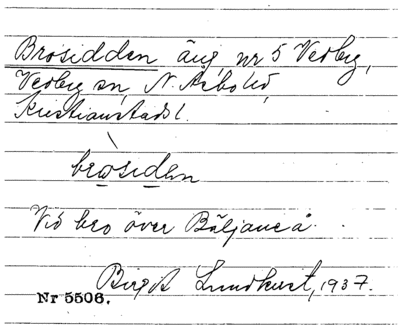 Brosidden äng nr 5 Vedby,
Vedby sn, N. Åsbo hd,
Kristianstads l.
bro̱siḏen
Vid bro över Bäljaneå.
Birgit Lundkvist, 1937.
Nr 5506.